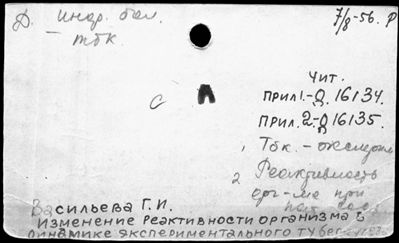 Д. инфр. бол.
- тбк.
7/8-56. Р
Чит.
Прил 1.-Д 16134.
Прил. 2-Д 16135.
1 Тбк. -
2 Реактивность
орг-ма при
Васильева Г.И.
Изменение реактивности организма в
динамике экспериментального тубер